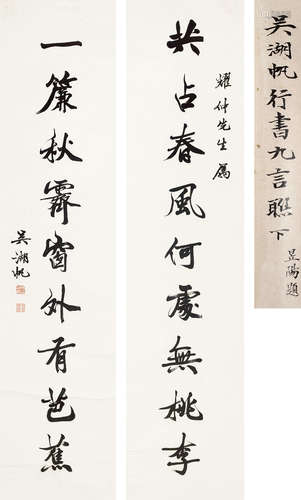 吳湖帆行書九言聯下
昱陽題
耀仲先生屬
共占春風何處無桃李
一簾秋霽窗外有芭蕉
吳湖帆